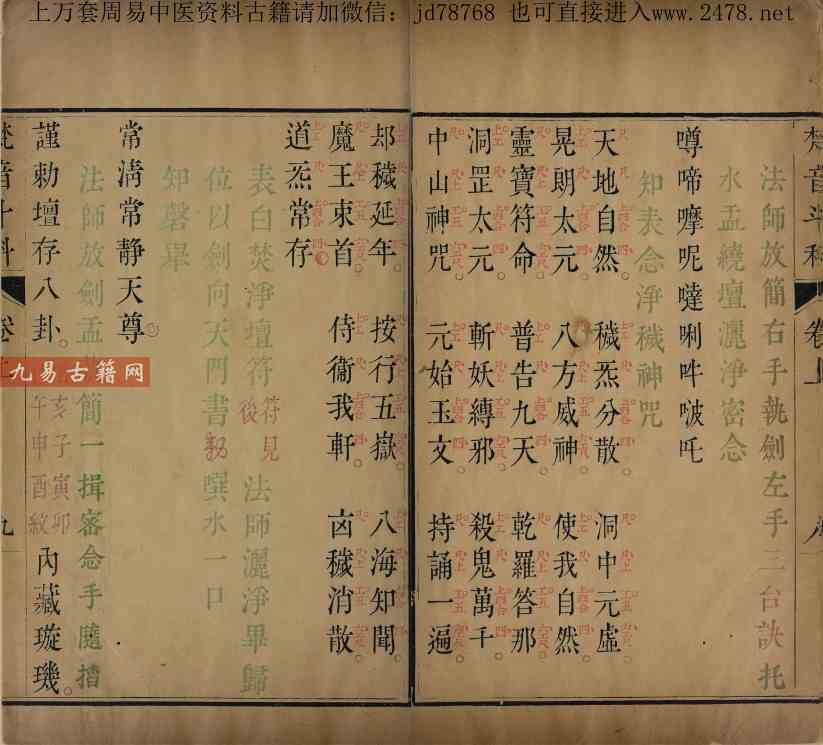 上万套周易中医资料古籍请加微信：jd78768 也可直接进入www.2478.net
梵音斗科
卷上
法師放簡右手執劍左手三台訣托
水盂繞壇灑淨密念
㗼啼嚤呢噠唎吽啵吒
知表念淨穢神咒
天地自然 穢炁分散 洞中元虛
晃朗太元 八方威神 使我自然
靈寶符命 普告九天 乾羅答那
洞罡太元 斬妖縛邪 殺鬼萬千
中山神咒 元始玉文 持誦一遍
却穢延年 按行五嶽 八海知聞
魔王束首 侍衞我軒 凶穢消散
道炁常存
表白焚淨壇符 符見後 法師灑淨畢歸
位以劍向天門書 噀水一口
知磬畢
常清常静天尊
法師放劍盂 簡一揖密念手隨搯
謹勅壇存八卦 亥子寅卯午申酉紋 內藏璇璣
梵音斗科
九
九易古籍网